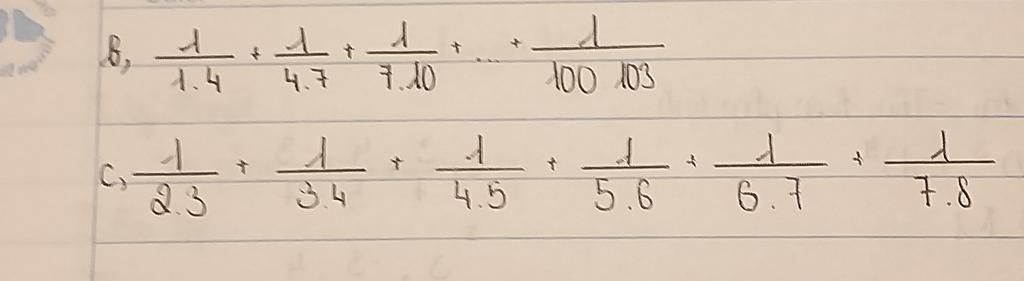 b, 1/1.4 + 1/4.7 + 1/7.10 + ... + 1/100 103
c, 1/2.3 + 1/3.4 + 1/4.5 + 1/5.6 + 1/6.7 + 1/7.8